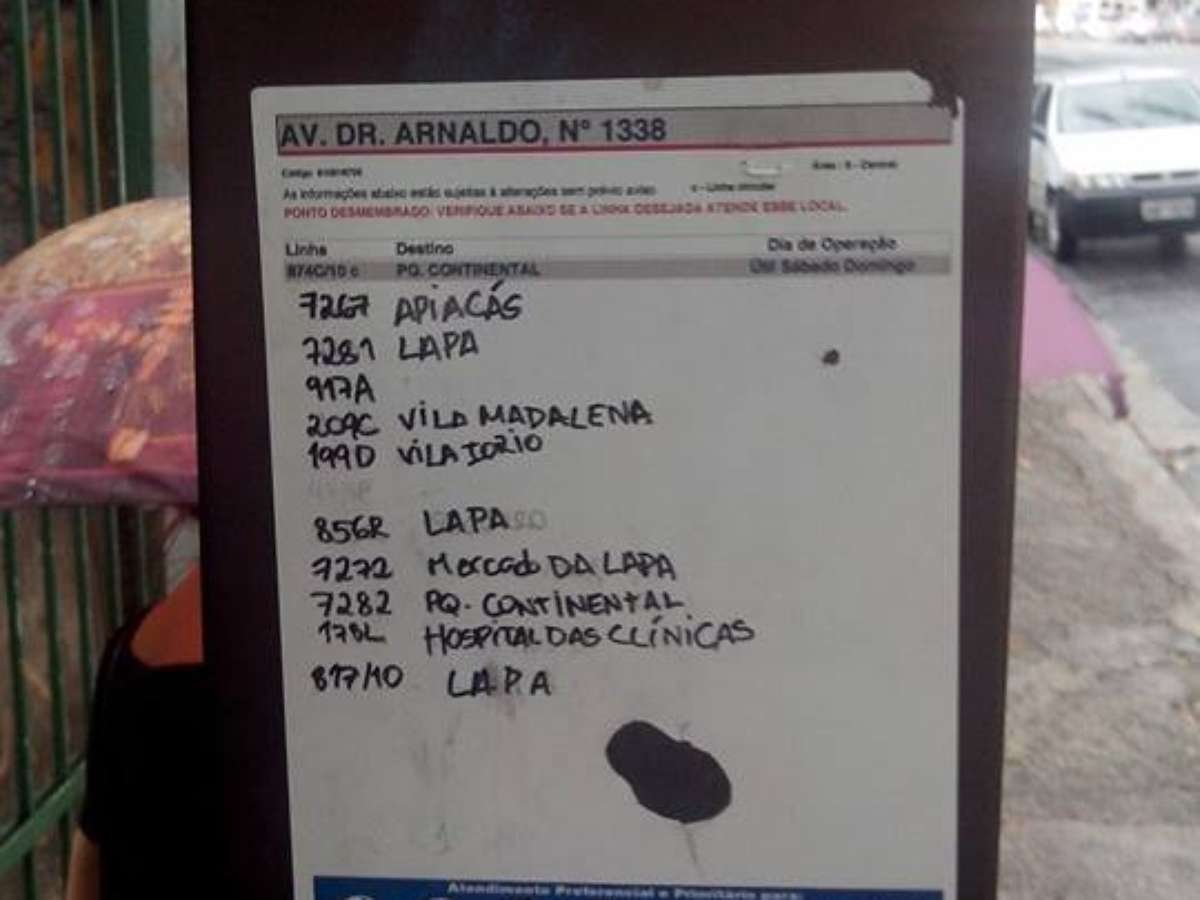 AV. DR. ARNALDO, N° 1338
Código
Área : 8 - Central
As informações abaixo estão sujeitas à alterações sem prévio aviso c - Linha circular
PONTO DESMEMBRADO: VERIFIQUE ABAIXO SE A LINHA DESEJADA ATENDE ESSE LOCAL.
Linha Destino Dia de Operação
874C/10 c PQ. CONTINENTAL Útil Sábado Domingo
7267 APIACÁS
7281 LAPA
917A
209C VILA MADALENA
199D VILA IORIO
856R LAPA
7272 Mercado DA LAPA
7282 PQ. CONTINENTAL
178L HOSPITAL DAS CLÍNICAS
817/10 LAPA
Atendimento Preferencial e Prioritário para: